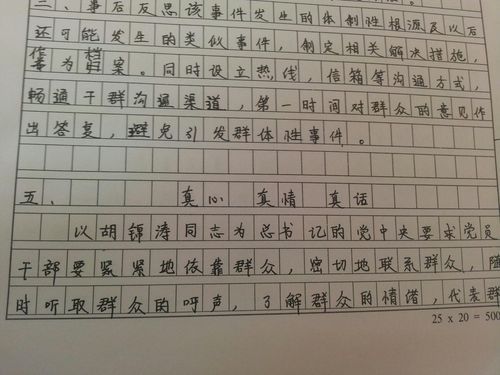 三、事后反思该事件发生的体制性根源及以后
还可能发生的类似事件，制定相关解决措施，
作为档案。同时设立热线，信箱等沟通方式，
畅通干群沟通渠道，第一时间对群众的意见作
出答复，避免引发群体性事件。
五、 真心 真情 真话
以胡锦涛同志为总书记的党中央要求党员
干部要紧紧地依靠群众，密切地联系群众，随
时听取群众的呼声，了解群众的情绪，代表群
25 x 20 = 500